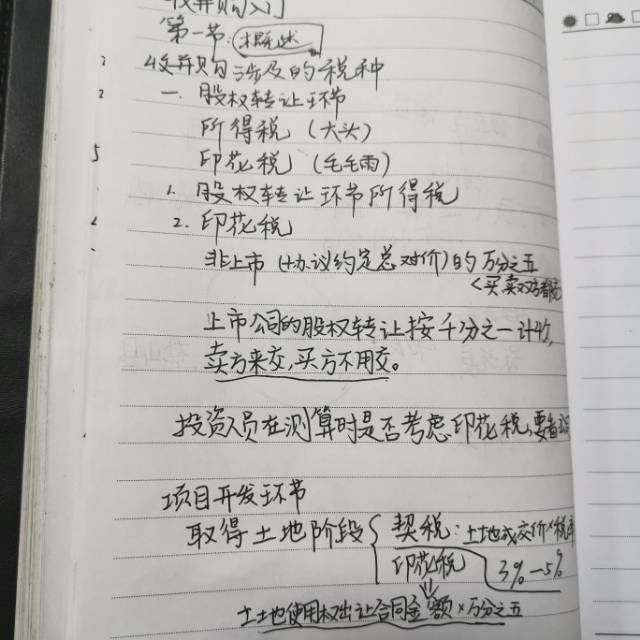 收并购入门
第一节:概述
收并购涉及的税种
一、股权转让环节
所得税(大头)
印花税(毛毛雨)
1. 股权转让环节所得税
2. 印花税
非上市(协议约定总对价)的万分之五
<买卖双方都
上市公司的股权转让按千分之一计收,
卖方来交,买方不用交。
投资人员在测算时是否考虑印花税,要看
项目开发环节
取得土地阶段{契税:土地成交价×税率
印花税 3%-5%
土地使用权出让合同金额×万分之五